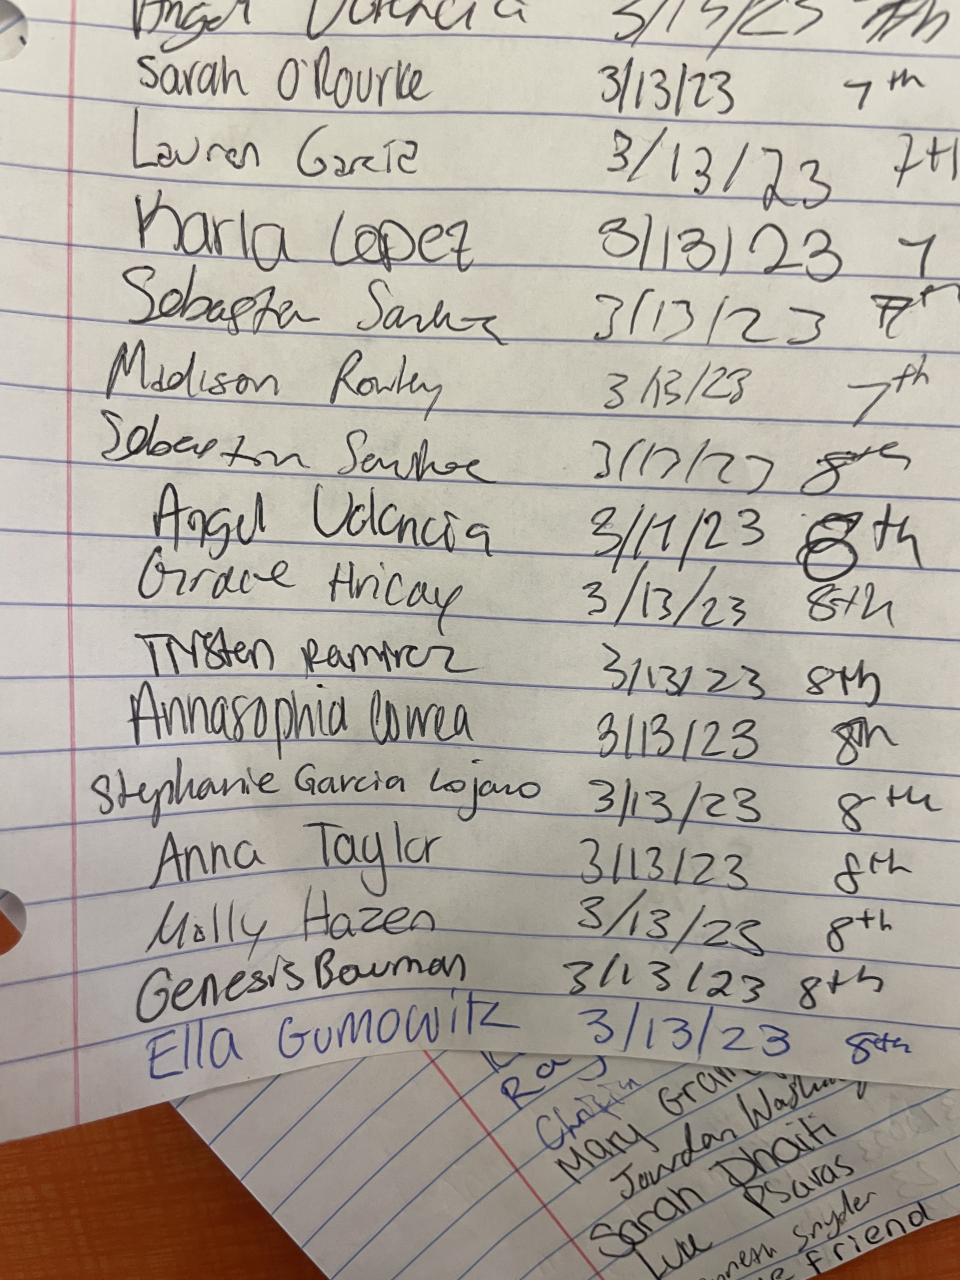 Angel Valencia 3/13/23 7th
Sarah O'Rourke 3/13/23 7th
Lauren Garcia 3/13/23 7th
Karla Lopez 3/13/23 7
Sebastian 3/13/23 7th
Madison Rowley 3/13/23 7th
Sebastian 3/13/23 8th
Angel Valencia 3/13/23 8th
Grace Hricay 3/13/23 8th
Trysten Ramirez 3/13/23 8th
Annasophia Correa 3/13/23 8th
Stephanie Garcia Lojano 3/13/23 8th
Anna Taylor 3/13/23 8th
Molly Hazen 3/13/23 8th
Genesis Bowman 3/13/23 8th
Ella Gumowitz 3/13/23 8th
Mary
Jourdan
Sarah Dhaiti
Luke Psaras
Snyder
friend